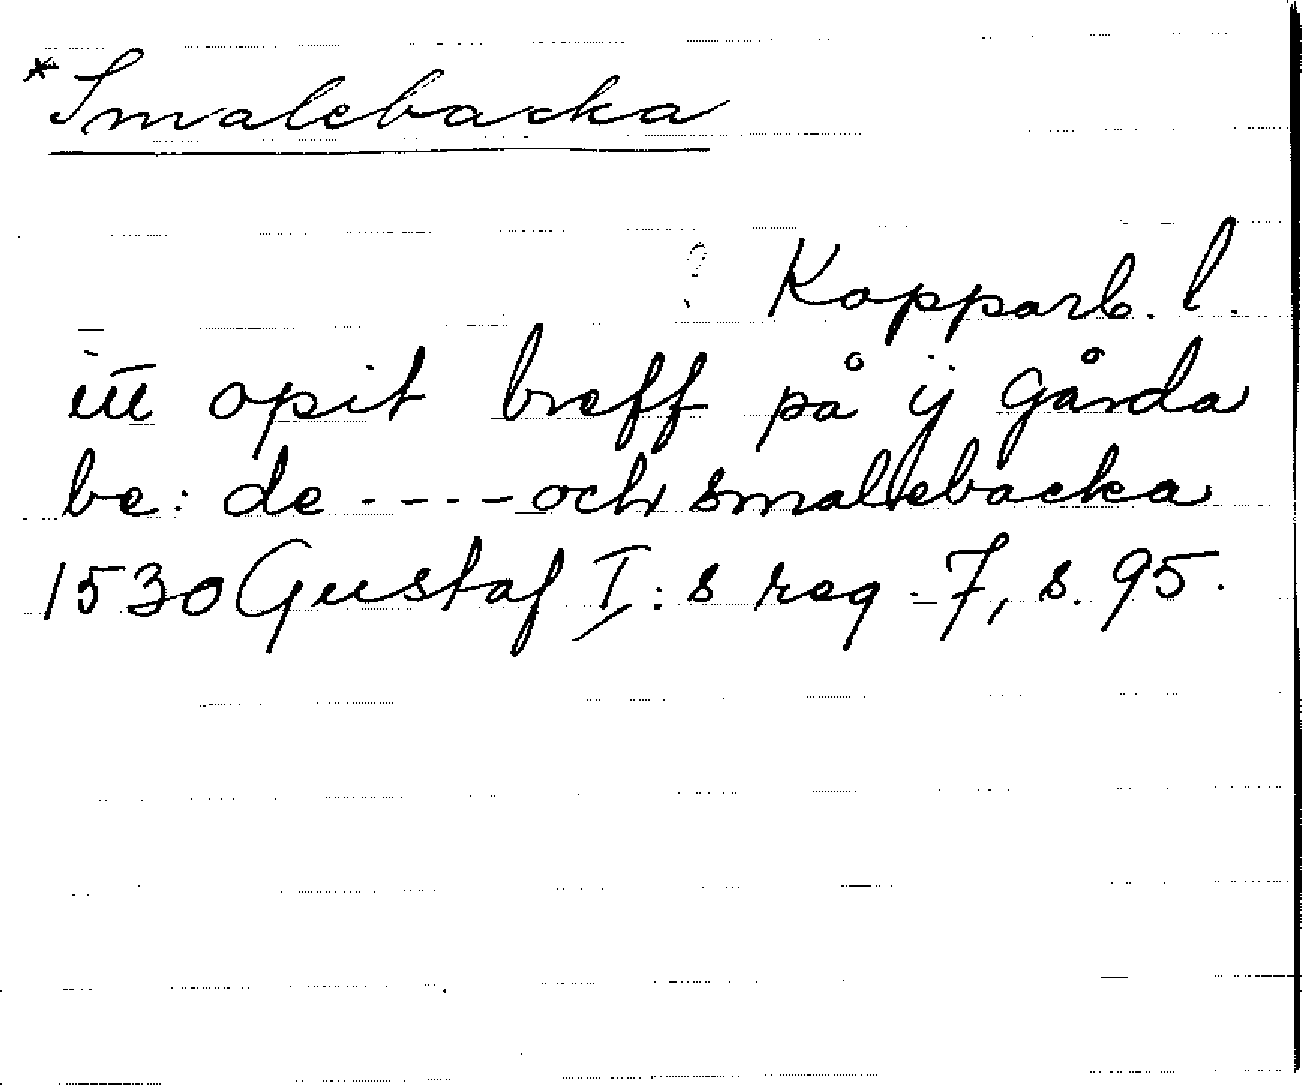 *Smalebacka
? Kopparb. l.
itt opit breff på ij gårda
be: de ---- och smallebacka
1530 Gustaf I:s reg. 7, s. 95.